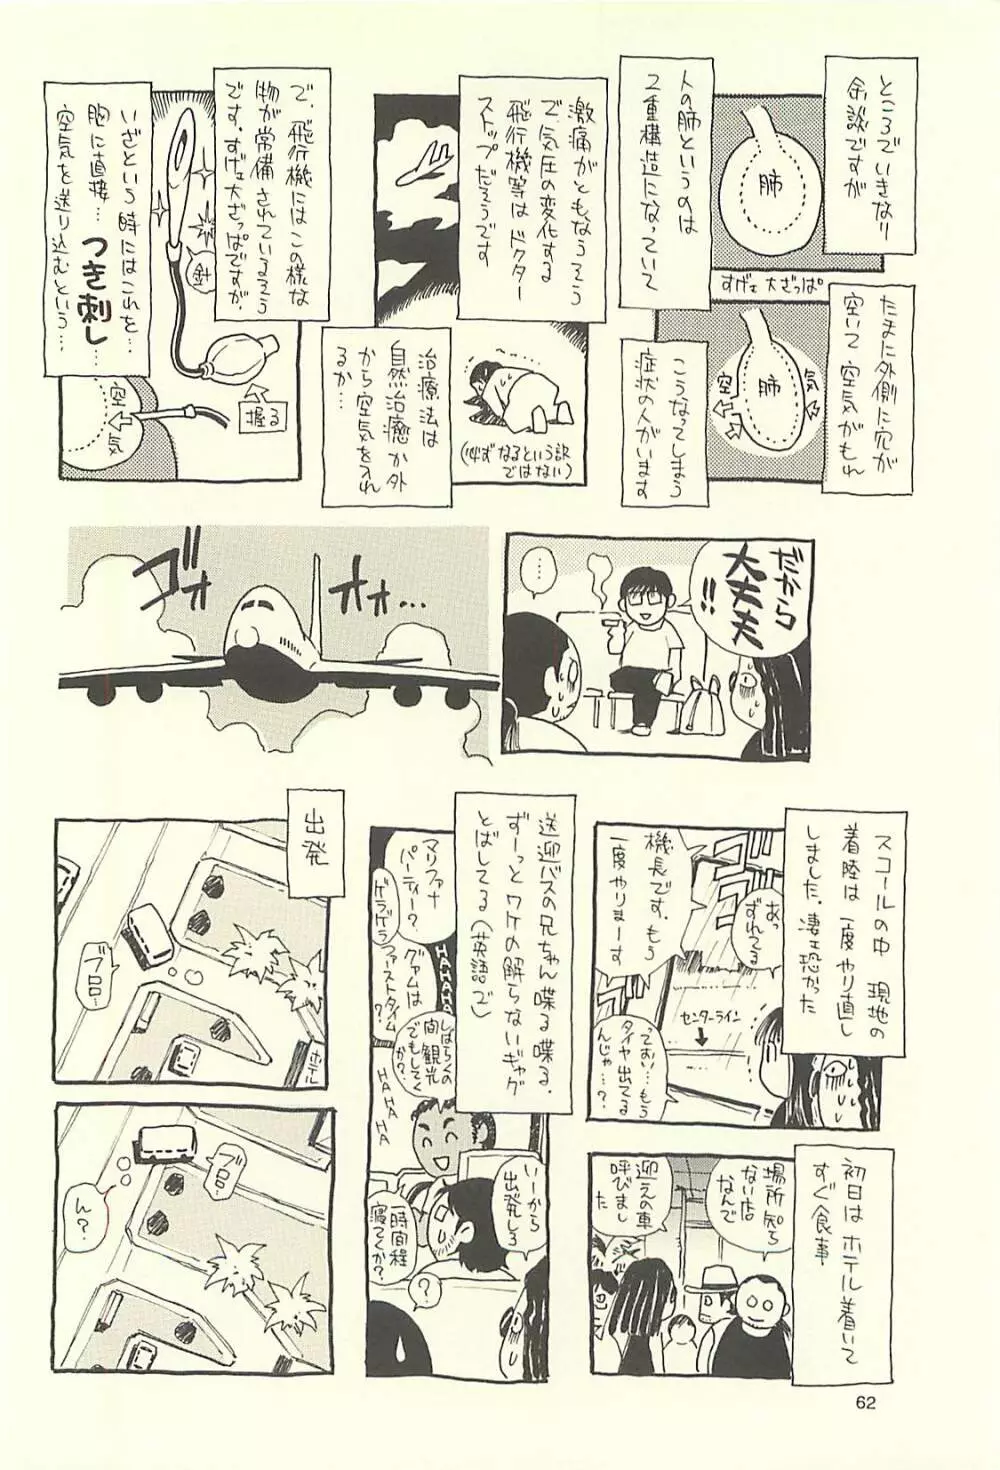 ところでいきなり
余談ですが
肺
すげェ大ざっぱ
人の肺というのは
2重構造になっていて
たまに外側に穴が
空いて空気がもれ
空
肺
気
こうなってしまう
症状の人がいます
激痛がともなうそう
で、気圧の変化する
飛行機等はドクター
ストップだそうです
(必ずなるという訳
ではない)
治療法は
自然治癒か外
から空気を入れ
るか…
で、飛行機にはこの様な
物が常備されているそう
です。すげェ大ざっぱですが、
針
握る
いざという時にはこれを…
胸に直接…つき刺し…
空気を送り込むという…
空
気
だから
大丈夫
!!
…
ゴオ
オォ…
スコールの中 現地の
着陸は一度やり直し
しました。凄ェ恐かった
あっ
ずれてる
機長です。もう
一度やりまーす
センターライン
っておい…もう
タイヤ出てる
んじゃ…?
初日はホテル着いて
すぐ食事
場所知ら
ない店
なんで
迎えの車
呼びまし
た
送迎バスの兄ちゃん喋る喋る、
ずーっとワケの解らないギャグ
とばしてる(英語で)
マリファナ
パーティー?
ゲラゲラ
HAHAHA
グァムは
ファストタイム
?
しばらくの
間観光
でもしてく
か?
HA
HA
HA
いーから
出発しろ
一時間程
寝てくか?
?
出発
ブロロ…
ホテル
ブロロ…
ん?
62